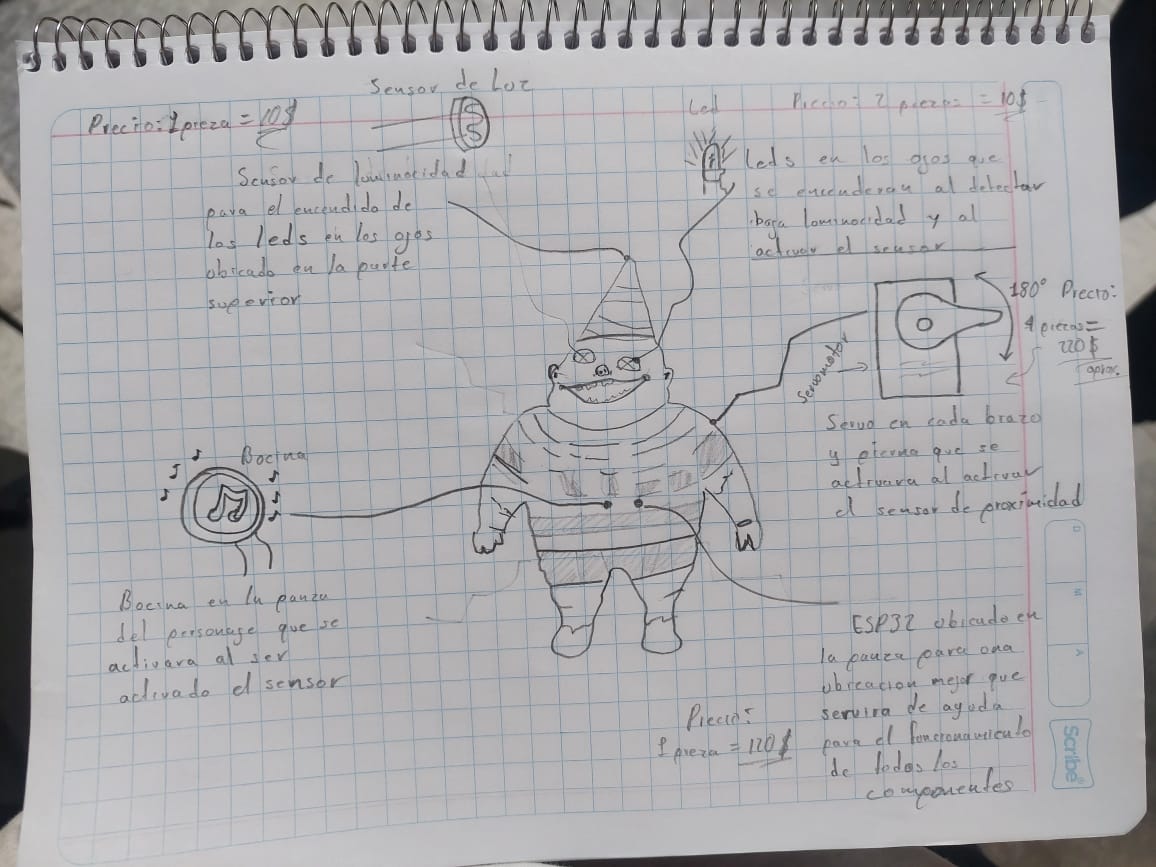 Sensor de Luz
Precio: 1 pieza = 10$
Sensor de luminocidad
para el encendido de
los leds en los ojos
obicado en la parte
superior
Led
Precio: 2 piezas = 10$
Leds en los ojos que
se encenderan al detectar
baja luminocidad y al
activar el sensor
180°
Precio:
4 piezas =
220$
aprox.
Servomotor
Servo en cada brazo
y pierna que se
activara al activar
el sensor de proximidad
Bocina
Bocina en la panza
del personaje que se
activara al ser
activado el sensor
ESP32 obicado en
la panza para una
ubicacion mejor que
servira de ayuda
para el funcionamiento
de todos los
componentes
Precio:
1 pieza = 120$
Scribe